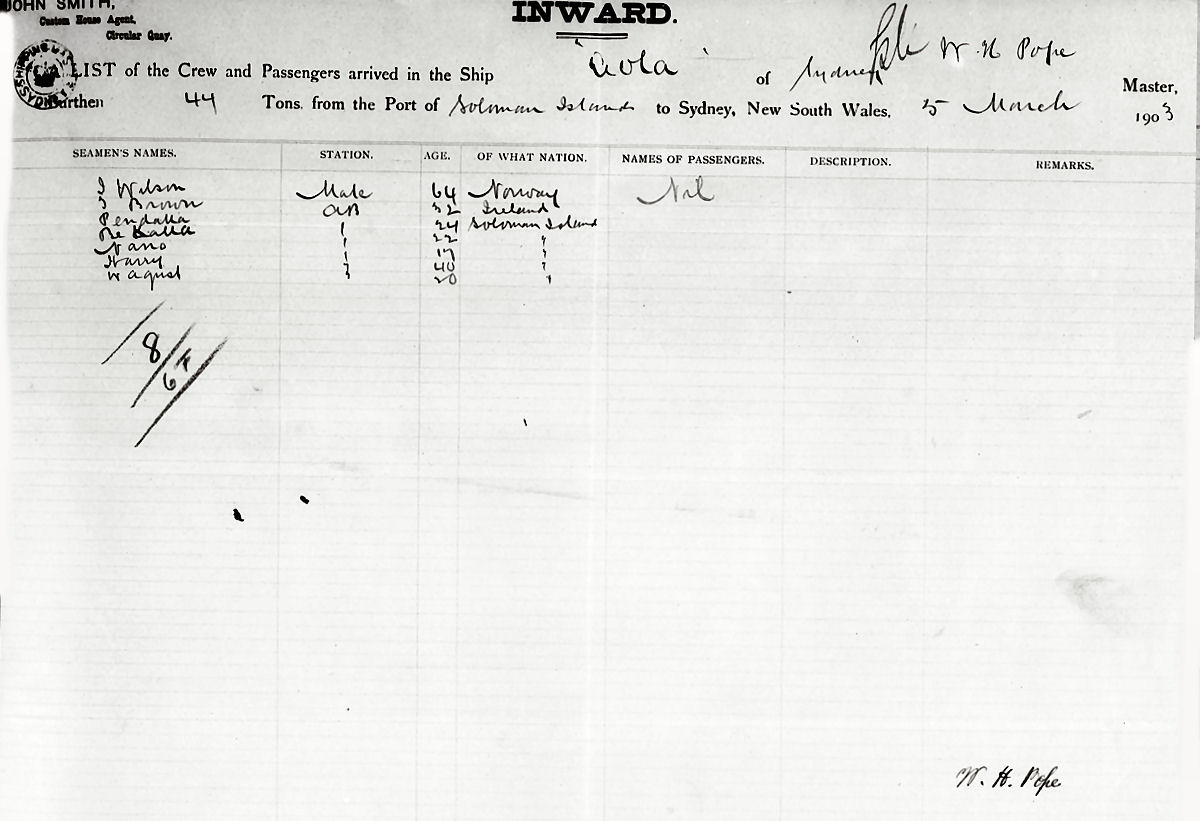 JOHN SMITH,
Custom House Agent,
Circular Quay.
INWARD.
A LIST of the Crew and Passengers arrived in the Ship "Aola" of Sydney W. H Pope Master,
Burthen 44 Tons. from the Port of Soloman Islands to Sydney, New South Wales, 5 March 1903
SEAMEN'S NAMES. STATION. AGE. OF WHAT NATION. NAMES OF PASSENGERS. DESCRIPTION. REMARKS.
J Wilson Mate 64 Norway Nil
J Brown AB 32 Ireland
Pendalla " 24 Soloman Island
" 22 "
Nano " 17 "
Harry " 40 "
W August " 20 "
8
6 F
W. H. Pope